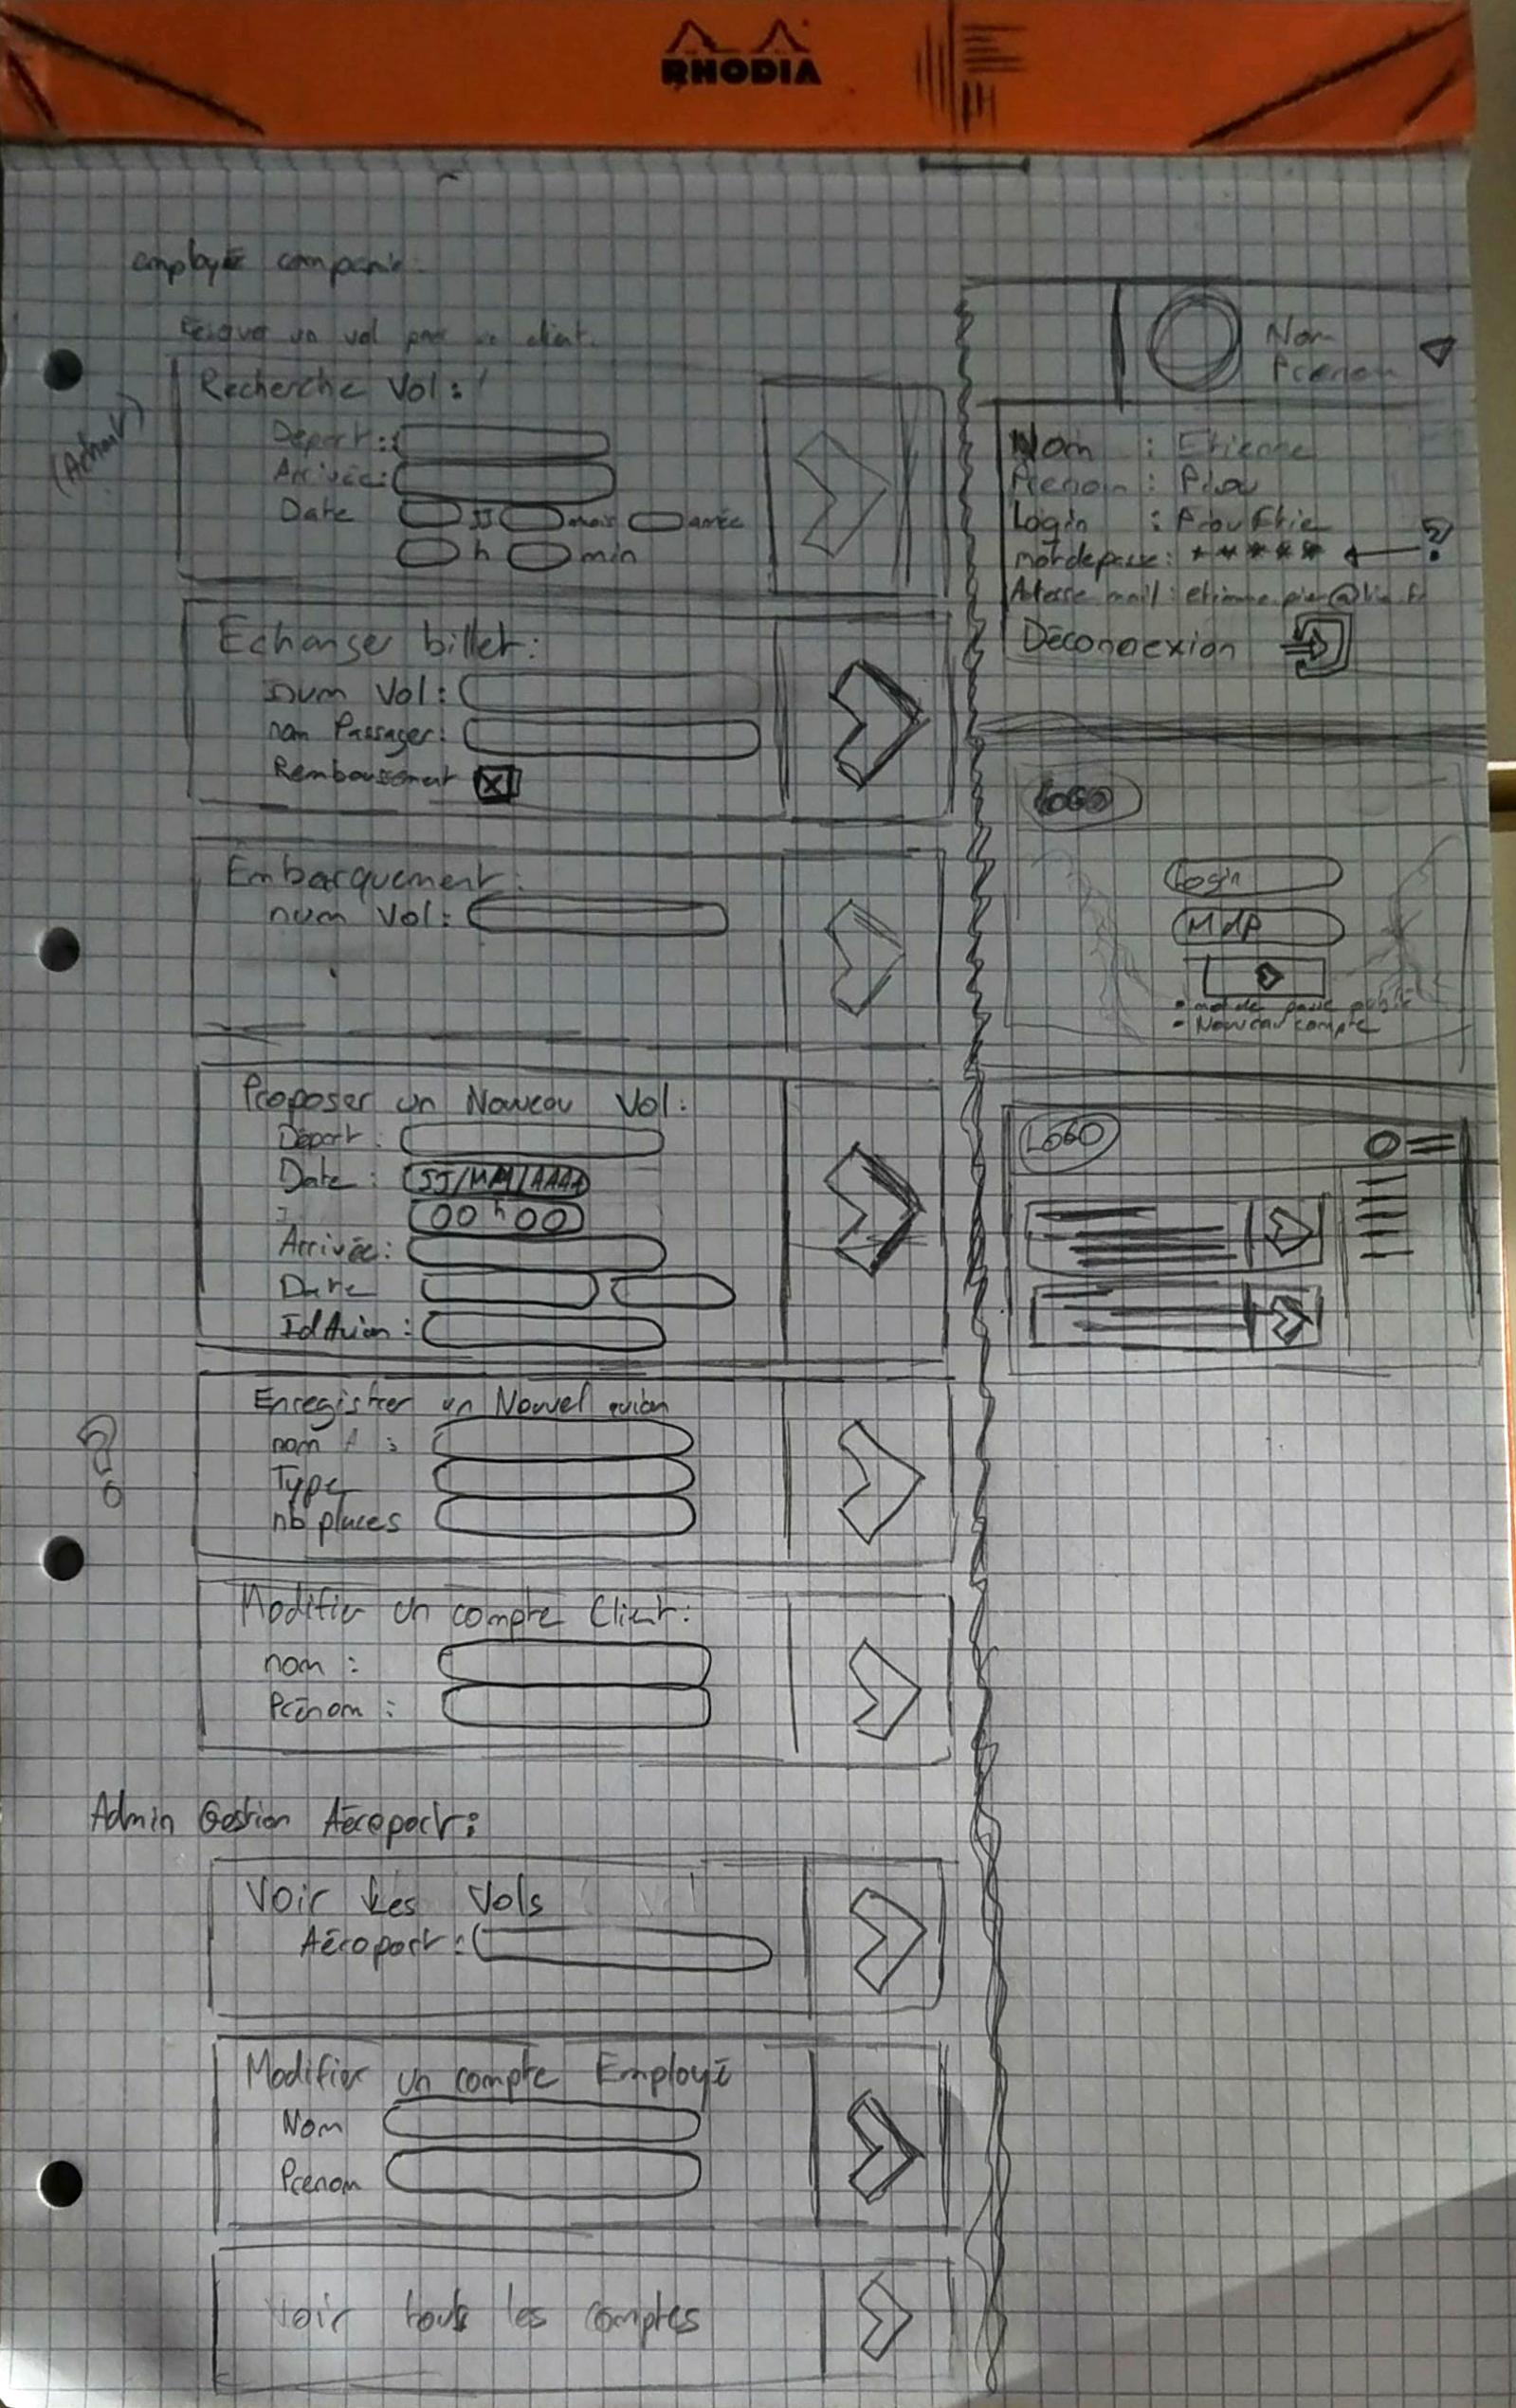 RHODIA
employé compagnie.
Réserver un vol pour un client.
(Achat)
Recherche Vol :
Départ :
Arrivée :
Date JJ mois année
h min
Echanger billet :
num Vol :
nom Passager :
Remboursement X
Embarquement :
num Vol :
Proposer un Nouveau Vol :
Départ :
Date : JJ/MM/AAAA
00 h 00
Arrivée :
Date
Id Avion :
?
Enregistrer un Nouvel avion
nom :
Type
nb places
Modifier un compte Client :
nom :
Prénom :
Admin Gestion Aéroport :
Voir Les Vols
Aéroport :
Modifier un compte Employé
Nom
Prenom
Voir touts les comptes
Nom
Prenom
Nom : Etienne
Prenom :
Login :
mot de passe : * * * * * ?
Adresse mail :
Déconnexion
LOGO
Login
MdP
• mot de passe oublié
• Nouveau compte
LOGO